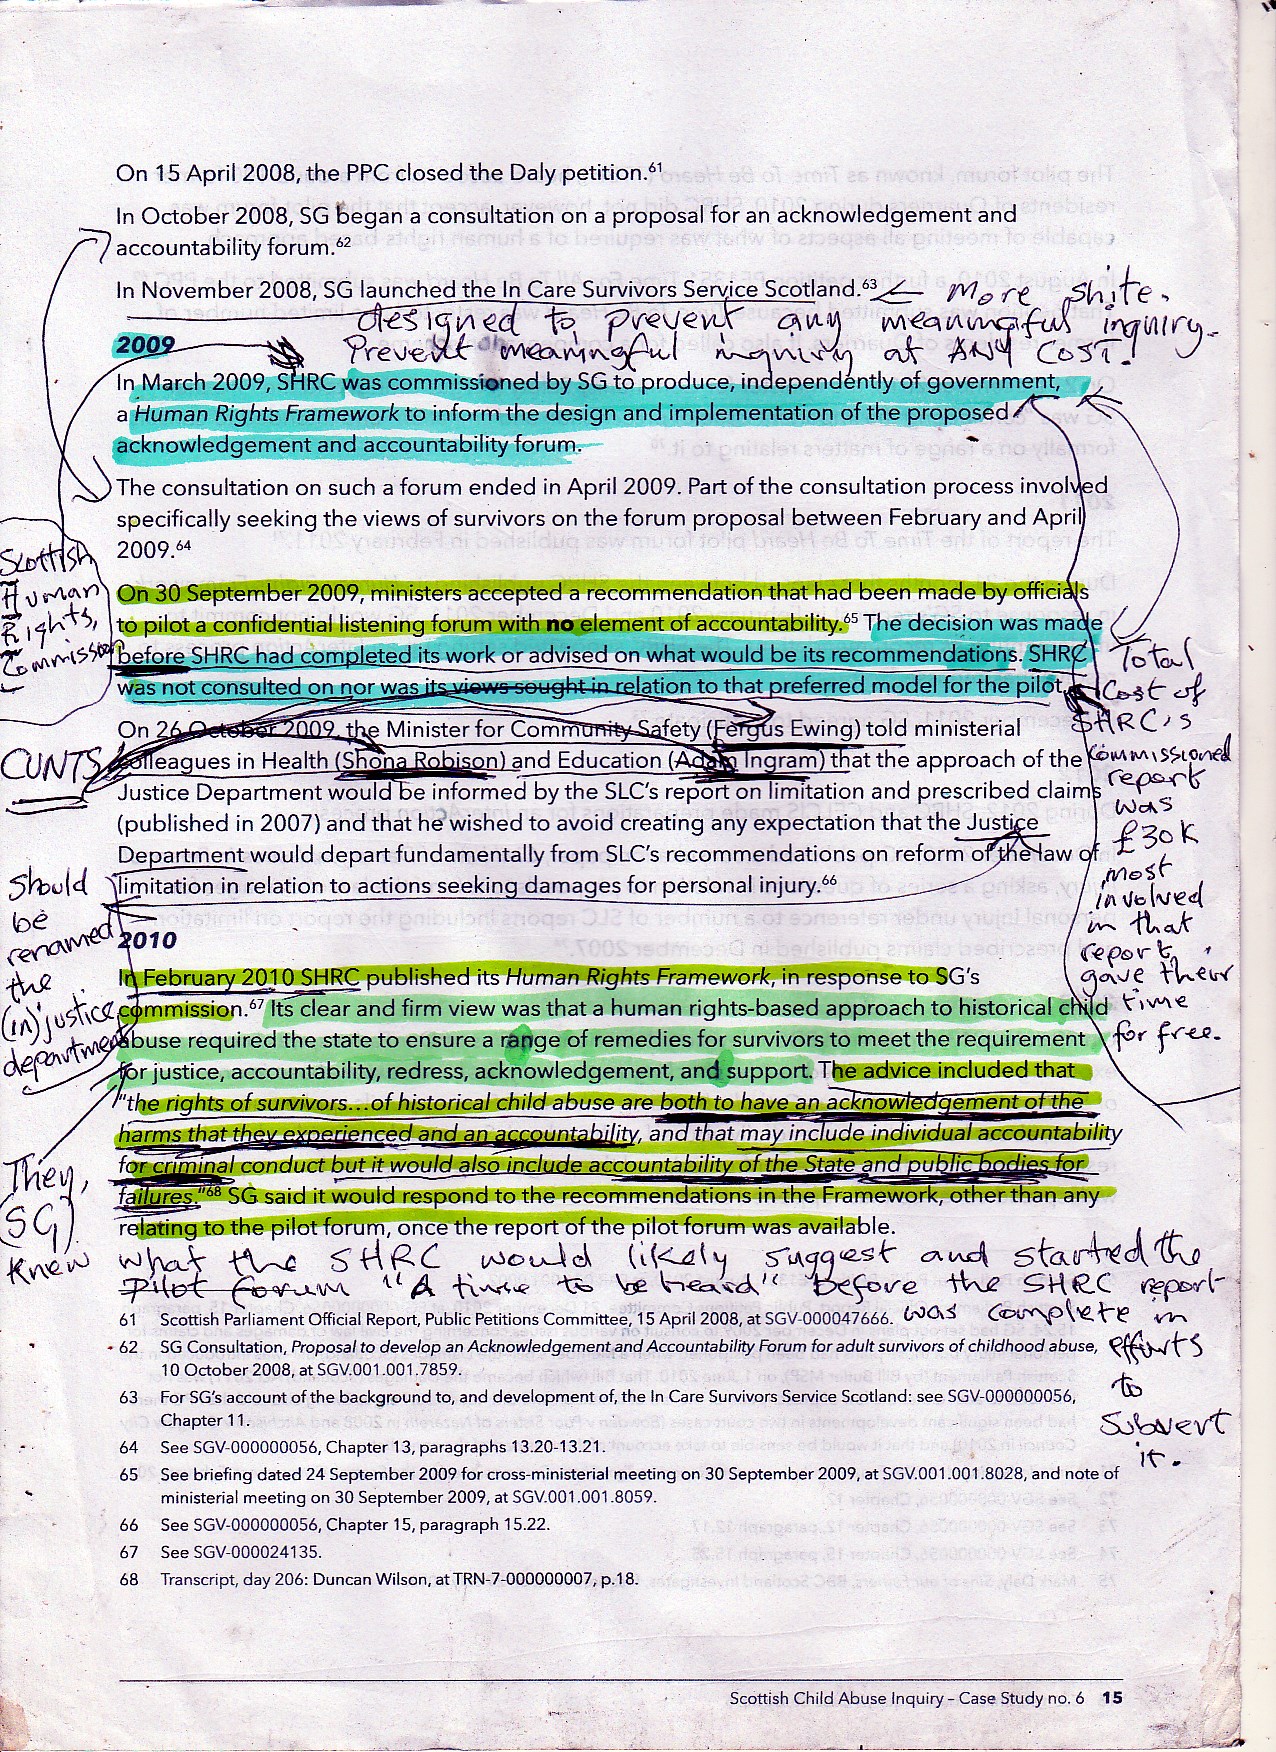 On 15 April 2008, the PPC closed the Daly petition.61
In October 2008, SG began a consultation on a proposal for an acknowledgement and
accountability forum.62
In November 2008, SG launched the In Care Survivors Service Scotland.63 ← More shite.
designed to prevent any meaningful inquiry.
Prevent meaningful inquiry at ANY COST!
2009
In March 2009, SHRC was commissioned by SG to produce, independently of government,
a Human Rights Framework to inform the design and implementation of the proposed
acknowledgement and accountability forum.
The consultation on such a forum ended in April 2009. Part of the consultation process involved
specifically seeking the views of survivors on the forum proposal between February and April
2009.64
Scottish
Human
Rights,
Commission
On 30 September 2009, ministers accepted a recommendation that had been made by officials
to pilot a confidential listening forum with no element of accountability.65 The decision was made
before SHRC had completed its work or advised on what would be its recommendations. SHRC
was not consulted on nor was its views sought in relation to that preferred model for the pilot.
Total
Cost of
SHRC's
commissioned
report
was
£30K
most
involved
in that
report,
gave their
time
for free.
CUNTS
On 26 October 2009, the Minister for Community Safety (Fergus Ewing) told ministerial
colleagues in Health (Shona Robison) and Education (Adam Ingram) that the approach of the
Justice Department would be informed by the SLC's report on limitation and prescribed claims
(published in 2007) and that he wished to avoid creating any expectation that the Justice
Department would depart fundamentally from SLC's recommendations on reform of the law of
limitation in relation to actions seeking damages for personal injury.66
Should
be
renamed
the
(in)justice
department
2010
In February 2010 SHRC published its Human Rights Framework, in response to SG's
commission.67 Its clear and firm view was that a human rights-based approach to historical child
abuse required the state to ensure a range of remedies for survivors to meet the requirement
for justice, accountability, redress, acknowledgement, and support. The advice included that
"the rights of survivors…of historical child abuse are both to have an acknowledgement of the
harms that they experienced and an accountability, and that may include individual accountability
for criminal conduct but it would also include accountability of the State and public bodies for
failures."68 SG said it would respond to the recommendations in the Framework, other than any
relating to the pilot forum, once the report of the pilot forum was available.
They,
(SG)
knew what the SHRC would likely suggest and started the
Pilot forum "A time to be heard" before the SHRC report
was complete in
efforts
to
subvert
it.
61 Scottish Parliament Official Report, Public Petitions Committee, 15 April 2008, at SGV-000047666.
62 SG Consultation, Proposal to develop an Acknowledgement and Accountability Forum for adult survivors of childhood abuse,
10 October 2008, at SGV.001.001.7859.
63 For SG's account of the background to, and development of, the In Care Survivors Service Scotland: see SGV-000000056,
Chapter 11.
64 See SGV-000000056, Chapter 13, paragraphs 13.20-13.21.
65 See briefing dated 24 September 2009 for cross-ministerial meeting on 30 September 2009, at SGV.001.001.8028, and note of
ministerial meeting on 30 September 2009, at SGV.001.001.8059.
66 See SGV-000000056, Chapter 15, paragraph 15.22.
67 See SGV-000024135.
68 Transcript, day 206: Duncan Wilson, at TRN-7-000000007, p.18.
Scottish Child Abuse Inquiry – Case Study no. 6 15